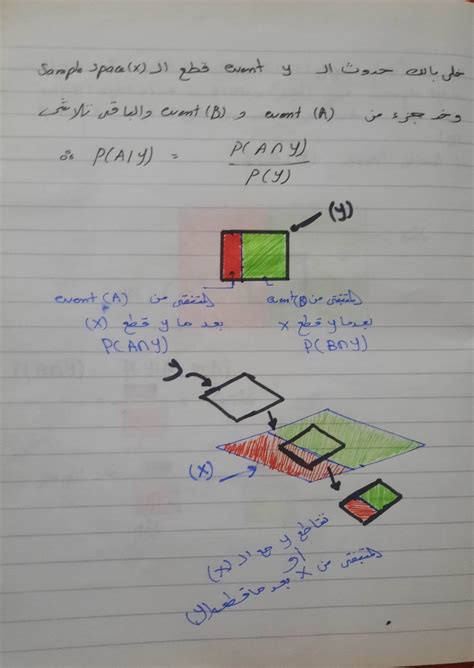 خلي بالك حدوث الـ event y قطع الـ Sample space(x)
وخد جزء من event (A) و event (B) والباقي تلاشى
∴ P(A/Y) = P(A∩Y) / P(Y)
(y)
المتبقي من event (A)
بعد ما y قطع (X)
P(A∩Y)
المتبقي من event(B)
بعد ما y قطع X
P(B∩Y)
y
(X)
تقاطع y مع الـ (X)
أو
المتبقي من X بعد ما قطعه (y)